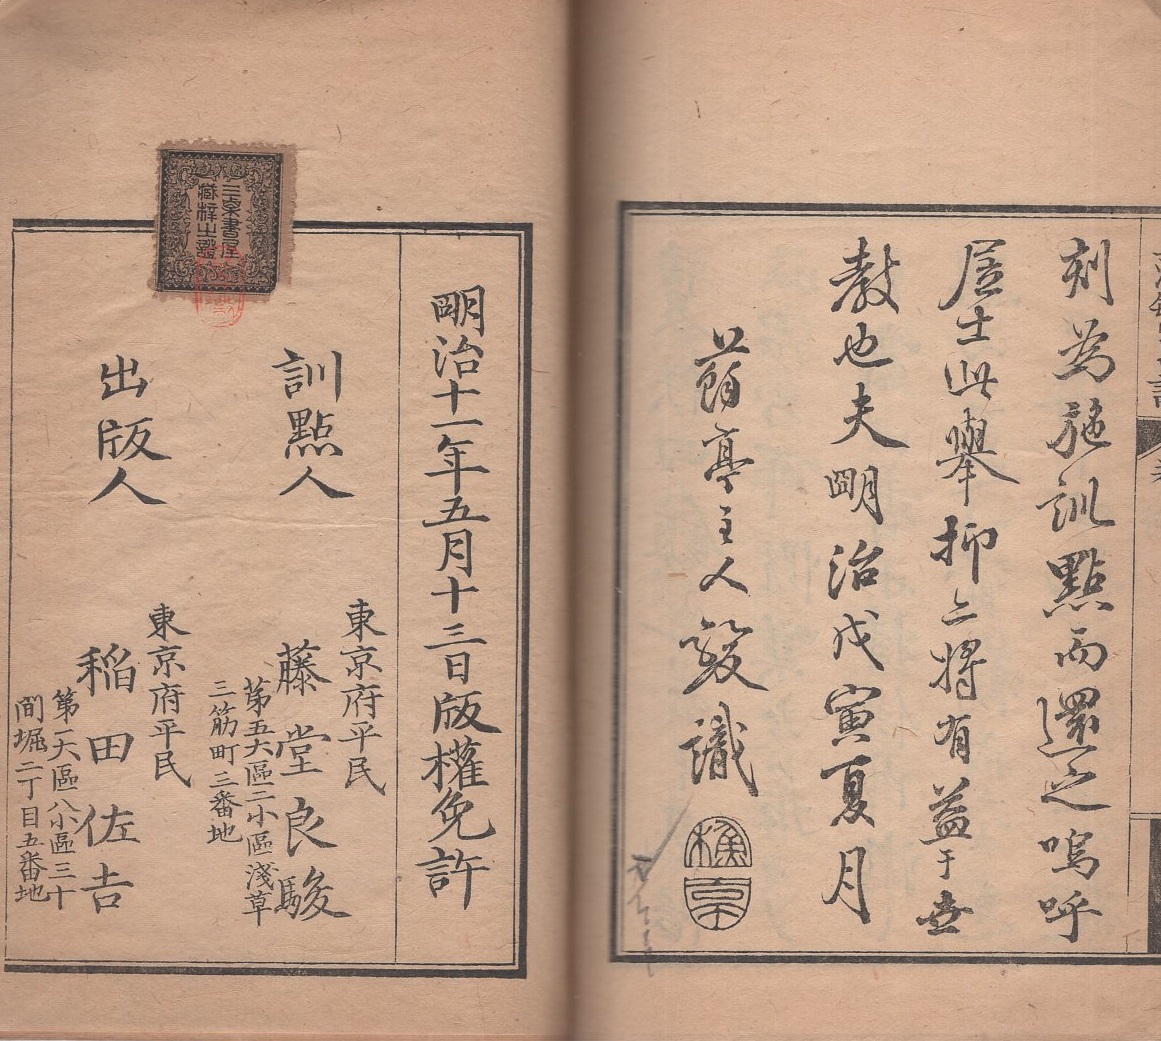 刻為施訓點而還之嗚呼
居士此舉抑亦將有益于世
教也夫明治戊寅夏月
亭主人毅識
明治十一年五月十三日版權免許
東京府平民
訓點人 藤堂良駿
第五大區二小區淺草
三筋町三番地
東京府平民
出版人 稲田佐吉
第一大區八小區三十
間堀二丁目五番地
書屋
藏梓之證